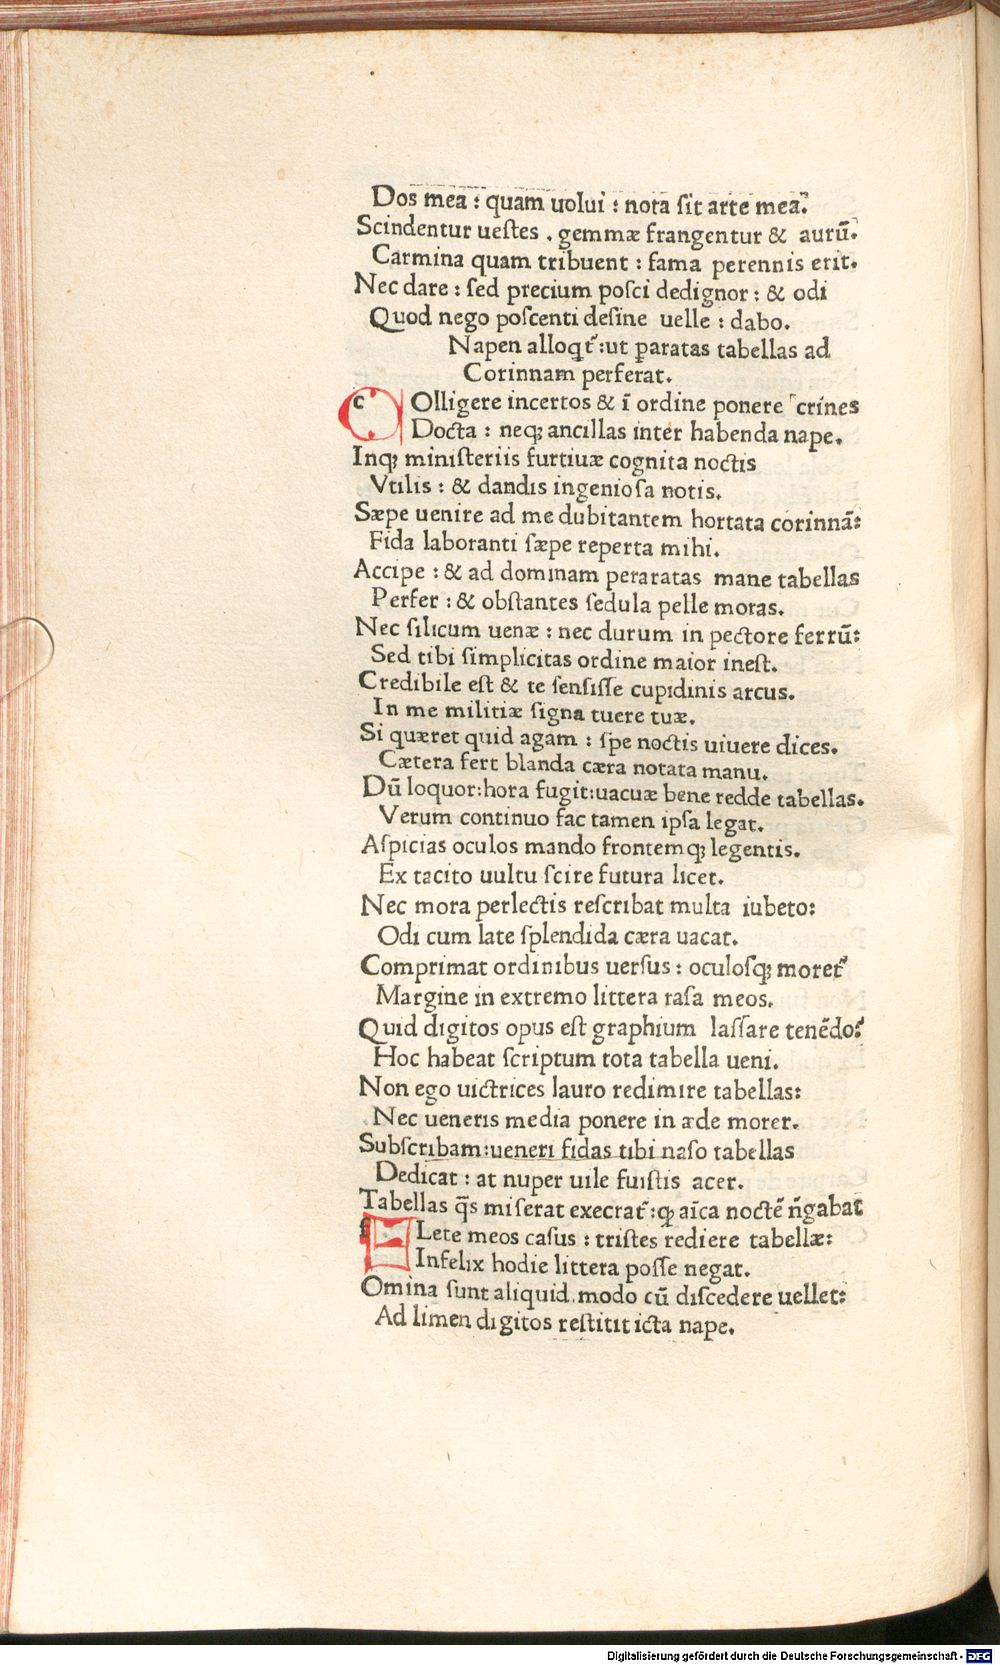 Dos mea : quam uolui : nota fit arte mea.
Scindentur ueſtes . gemmæ frangentur & aurū.
Carmina quam tribuent : fama perennis erit.
Nec dare : ſed precium poſci dedignor : & odi
Quod nego poſcenti deſine uelle : dabo.
Napen alloqt̄ :ut paratas tabellas ad
Corinnam perferat.
COlligere incertos & ī ordine ponere crines
Docta : neqꝫ ancillas inter habenda nape.
Inqꝫ miniſteriis furtiuæ cognita noctis
Vtilis : & dandis ingenioſa notis.
Sæpe uenire ad me dubitantem hortata corinnā:
Fida laboranti ſæpe reperta mihi.
Accipe : & ad dominam peraratas mane tabellas
Perfer : & obſtantes ſedula pelle moras.
Nec ſilicum uenæ : nec durum in pectore ferrū:
Sed tibi ſimplicitas ordine maior ineſt.
Credibile eſt & te ſenſiſſe cupidinis arcus.
In me militiæ ſigna tuere tuæ.
Si quæret quid agam : ſpe noctis uiuere dices.
Cætera fert blanda cæra notata manu.
Dū loquor:hora fugit:uacuæ bene redde tabellas.
Verum continuo fac tamen ipſa legat.
Aſpicias oculos mando frontemqꝫ legentis.
Ex tacito uultu ſcire futura licet.
Nec mora perlectis reſcribat multa iubeto:
Odi cum late ſplendida cæra uacat.
Comprimat ordinibus uerſus : oculoſqꝫ moret᷑
Margine in extremo littera raſa meos.
Quid digitos opus eſt graphium laſſare tenēdo?
Hoc habeat ſcriptum tota tabella ueni.
Non ego uictrices lauro redimire tabellas:
Nec ueneris media ponere in æde morer.
Subſcribam:ueneri fidas tibi naſo tabellas
Dedicat : at nuper uile fuiſtis acer.
Tabellas q̄s miſerat execrat᷑ :ꝙ aīca noctē ñgabat
FLete meos caſus : triſtes rediere tabellæ:
Infelix hodie littera poſſe negat.
Omina ſunt aliquid.modo cū diſcedere uellet:
Ad limen digitos reſtitit icta nape.
Digitalisierung gefördert durch die Deutsche Forschungsgemeinschaft - DFG